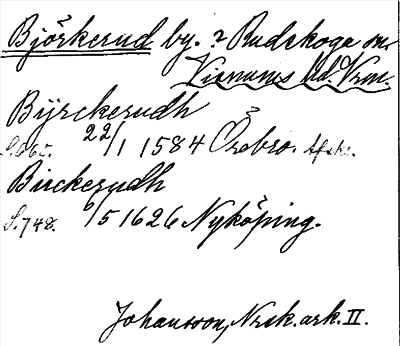 Björkerud by. ? Rudskoga sn.
Visnums hd. Vrm.
Byrckerudh
S. 065. 22/1 1584 Örebro. Afskr.
Birckerudh
S. 748. 6/5 1626 Nyköping.
Johansson, Nrsk. ark. II.